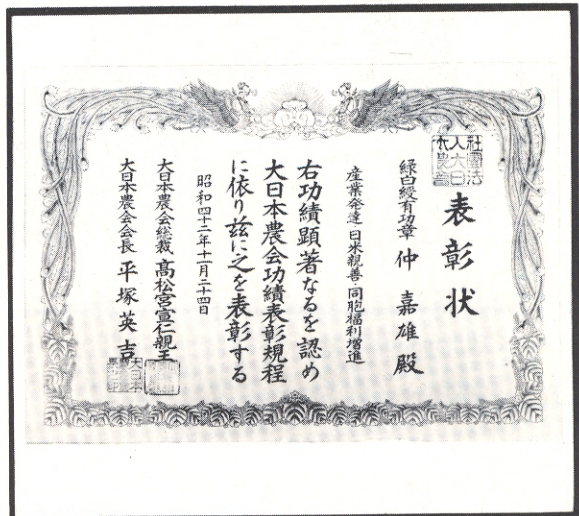 表彰状
緑白綬有功章 仲 嘉雄殿
産業発達・日米親善・同胞福利増進
右功績顕著なるを認め
大日本農会功績表彰規程
に依り玆に之を表彰する
昭和四十二年十一月二十四日
大日本農会総裁 高松宮宣仁親王
大日本農会会長 平塚英吉